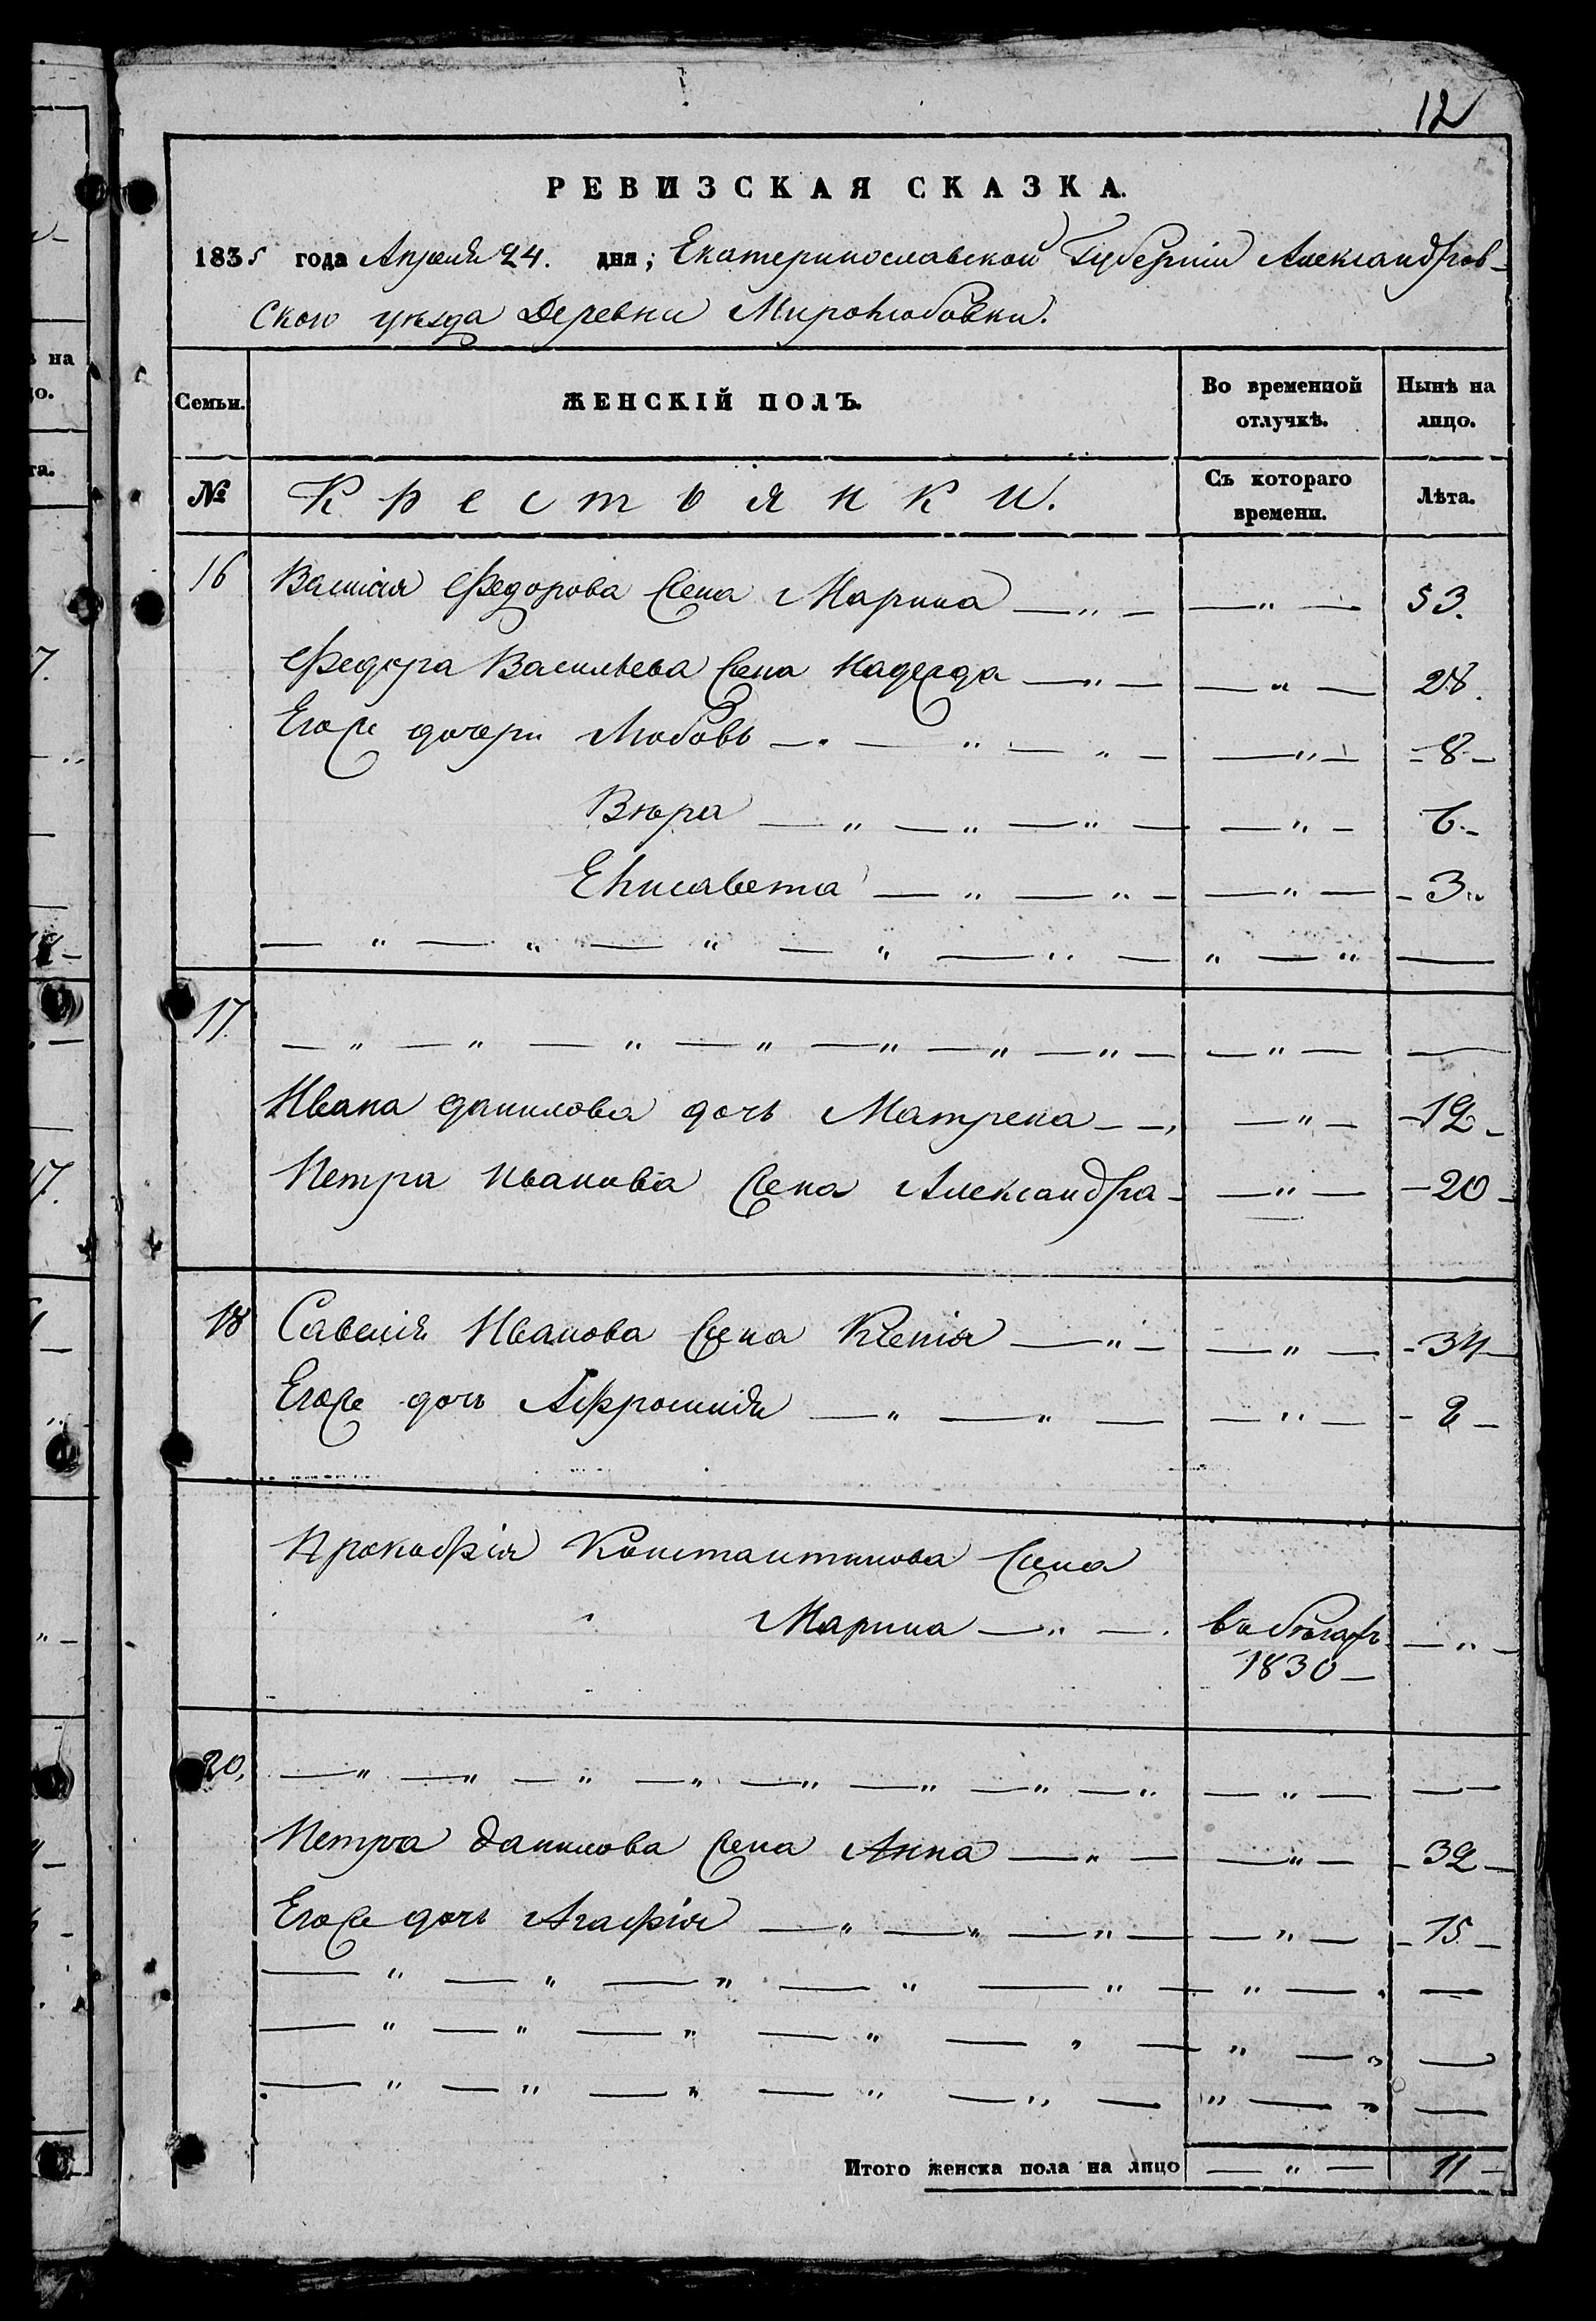 12
РЕВИЗСКАЯ СКАЗКА.
1835 года Апреля 24. дня; Екатеринославской Губерніи Александров-
скаго уѣзда Деревни Миролюбовки.
ѣ на
цо.
та.
Семьи. ЖЕНСКІЙ ПОЛЪ. Во временной отлучкѣ. Нынѣ на лицо.
№ Крестьянки. Съ котораго времени. Лѣта.
16 Василія Федорова Жена Марина — „ — — „ — 53.
Федора Васильева Жена Надежда — „ — — „ — 28.
Егоже дочери Любовь — „ — „ — „ — — „ — - 8 -
Вѣра — „ — „ — „ — — „ — 6. -
Елисавета — „ — „ — — „ — - 3 „
— „ — „ — „ — „ — „ — „ — „ —
17. — „ — „ — „ — „ — „ — „ — „ — — „ — —
Ивана данилова дочь Матрена - - , — „ — - 12 -
Петра иванова Жена Александра - — „ — - 20 -
18 Савелія Иванова Жена Ксенія — „ — — „ — - 34 -
Егоже дочь Афросинія — „ — „ — — „ — - 2 -
Прокофія Константинова Жена
Марина — „ — . въ бѣгахъ — „ —
1830 —
20. — „ — „ — „ — „ — „ — „ — „ — „ — „ — —
Петра данилова Жена Анна — „ — — „ — - 32 -
Егоже дочь Агафія — „ — „ — „ — — „ — - 15 -
— „ — „ — „ — „ — „ — „ — „ —
— „ — „ — „ — „ — „ — „ — „ —
— „ — „ — „ — „ — „ — „ — „ —
Итого женска пола на лицо — „ — 11 -